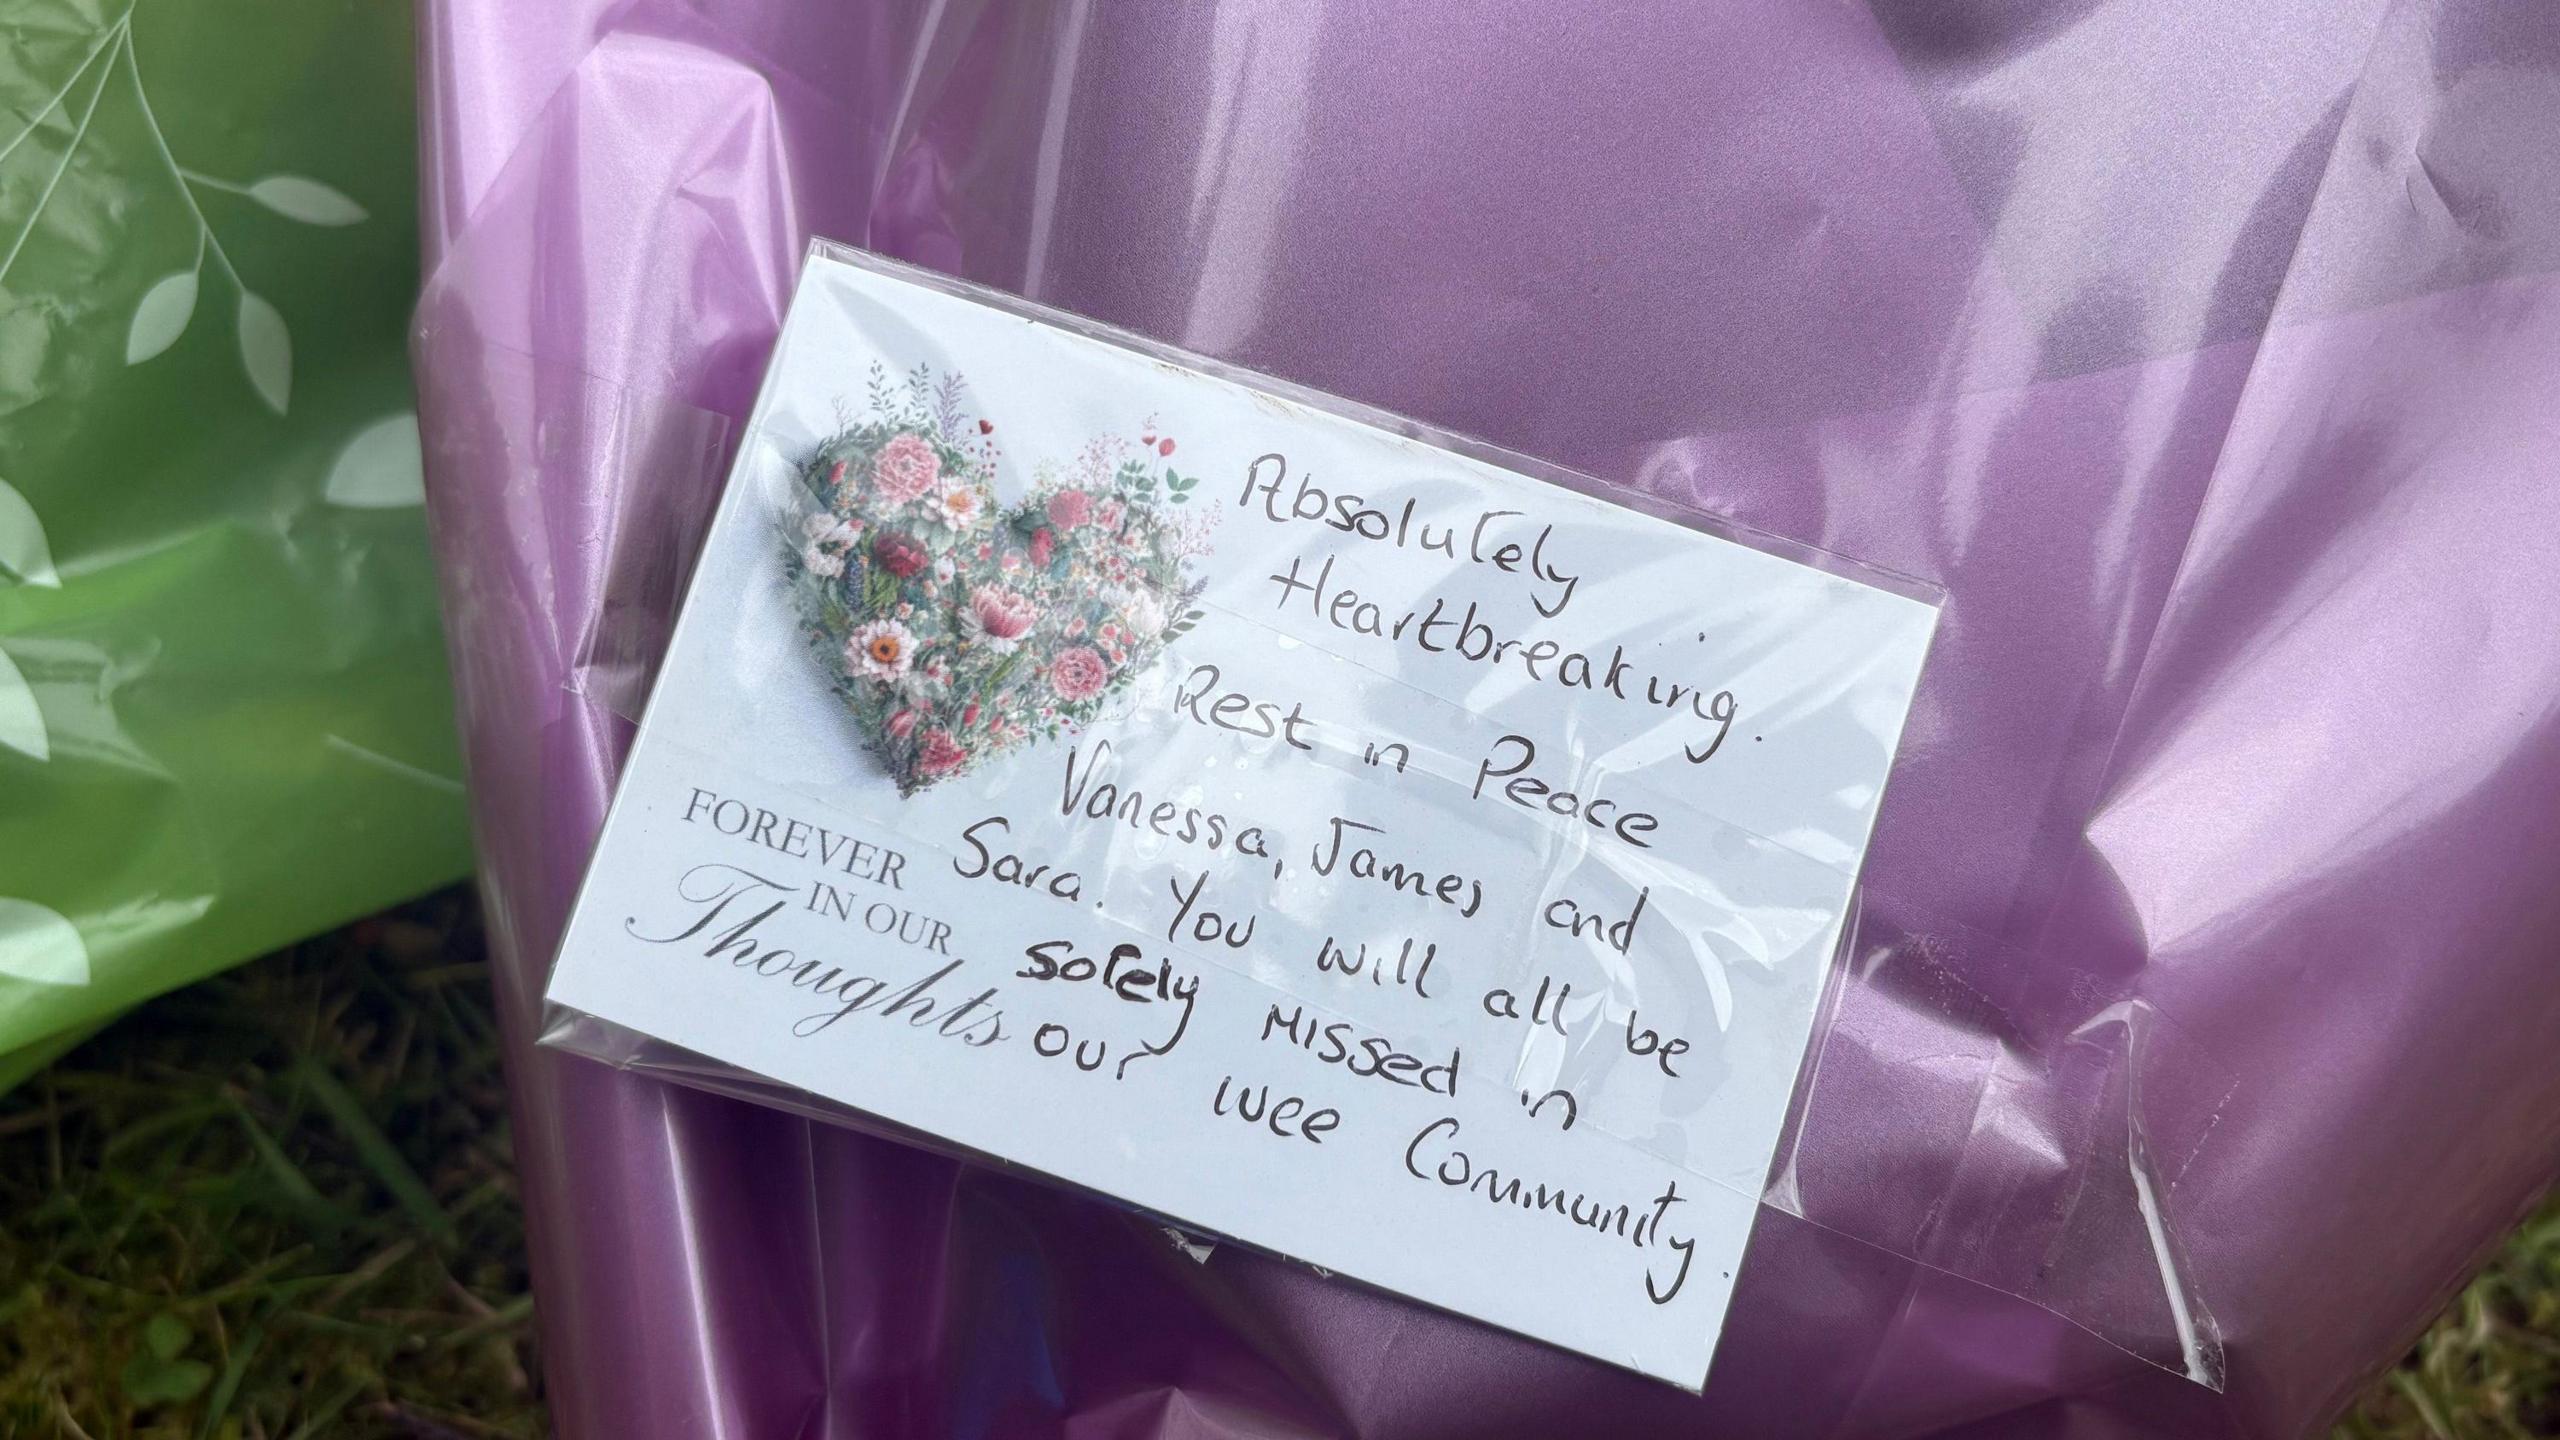 Absolutely
Heartbreaking.
Rest in Peace
Vanessa, James and
Sara. You will all be
sorely missed in
our wee Community.
FOREVER
IN OUR
Thoughts